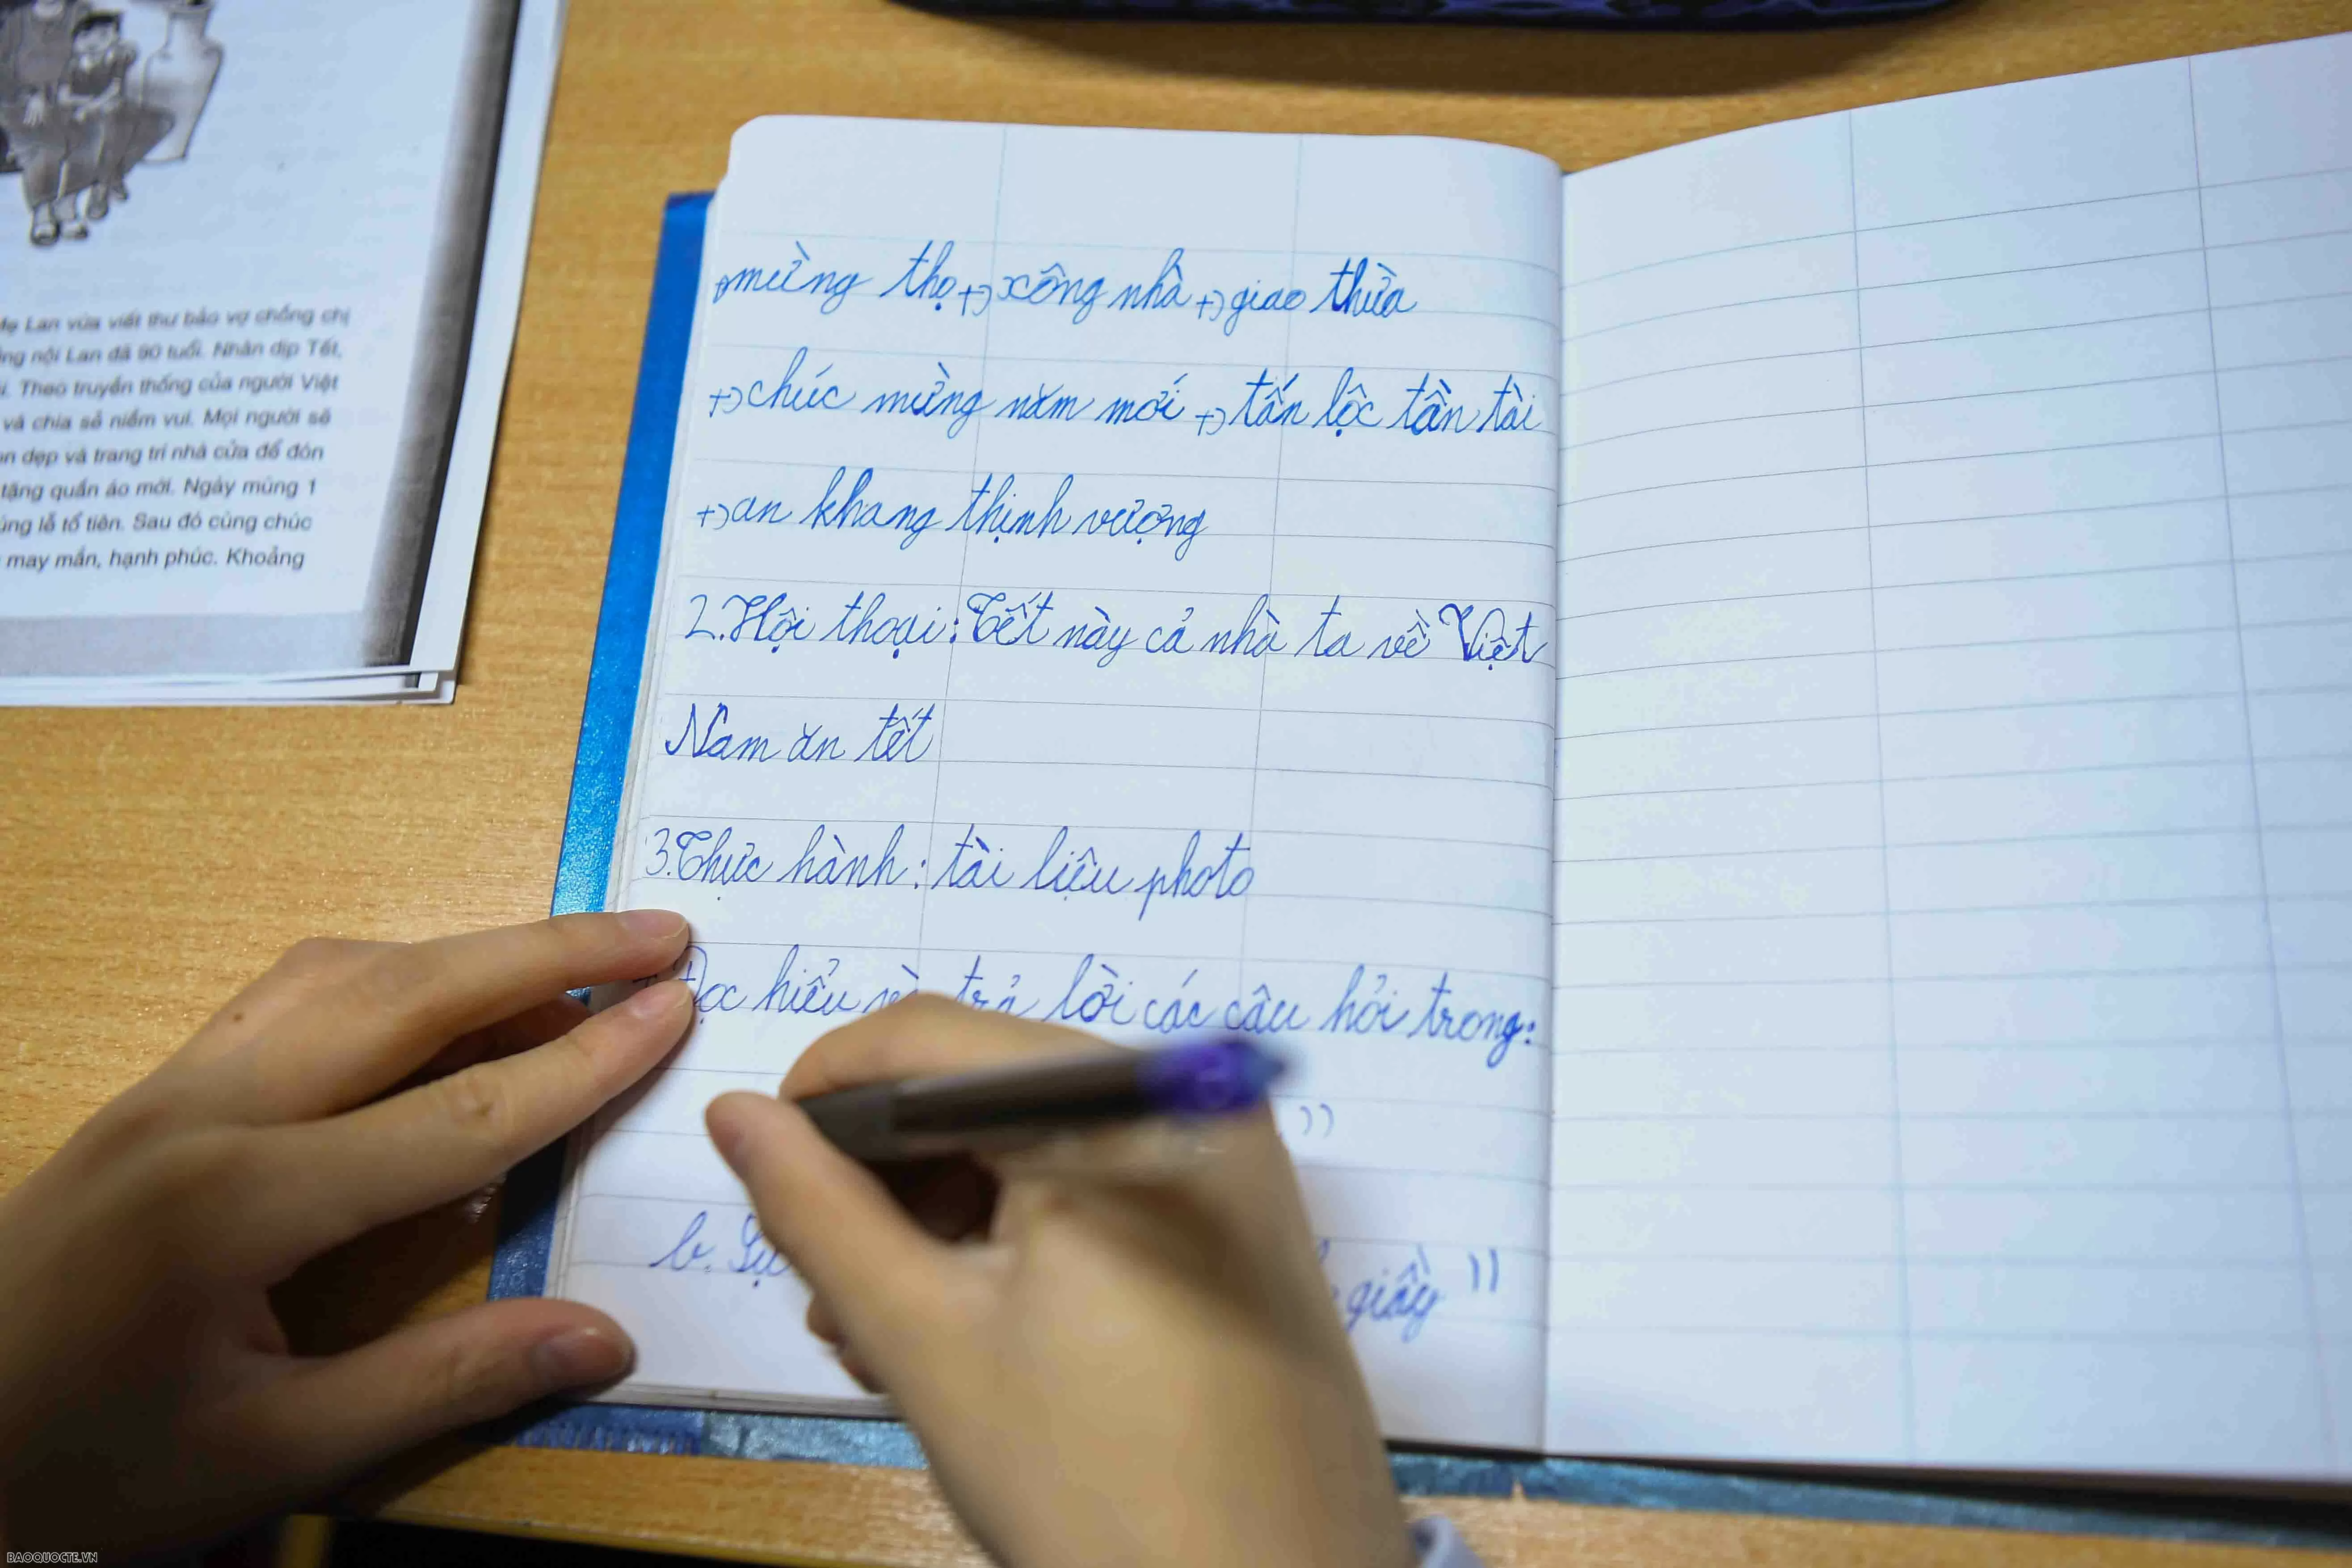 Mẹ Lan vừa viết thư bảo vợ chồng chị
ông nội Lan đã 90 tuổi. Nhân dịp Tết,
Theo truyền thống của người Việt
và chia sẻ niềm vui. Mọi người sẽ
dọn dẹp và trang trí nhà cửa để đón
tặng quần áo mới. Ngày mùng 1
cúng lễ tổ tiên. Sau đó cùng chúc
may mắn, hạnh phúc. Khoảng
mừng thọ +) xông nhà +) giao thừa
+) chúc mừng năm mới +) tấn lộc tấn tài
+) an khang thịnh vượng
2. Hội thoại: Tết này cả nhà ta về Việt
Nam ăn tết
3. Thực hành: tài liệu photo
Đọc hiểu và trả lời các câu hỏi trong:
"
b. Sự giầy "
BAOQUOCTE.VN